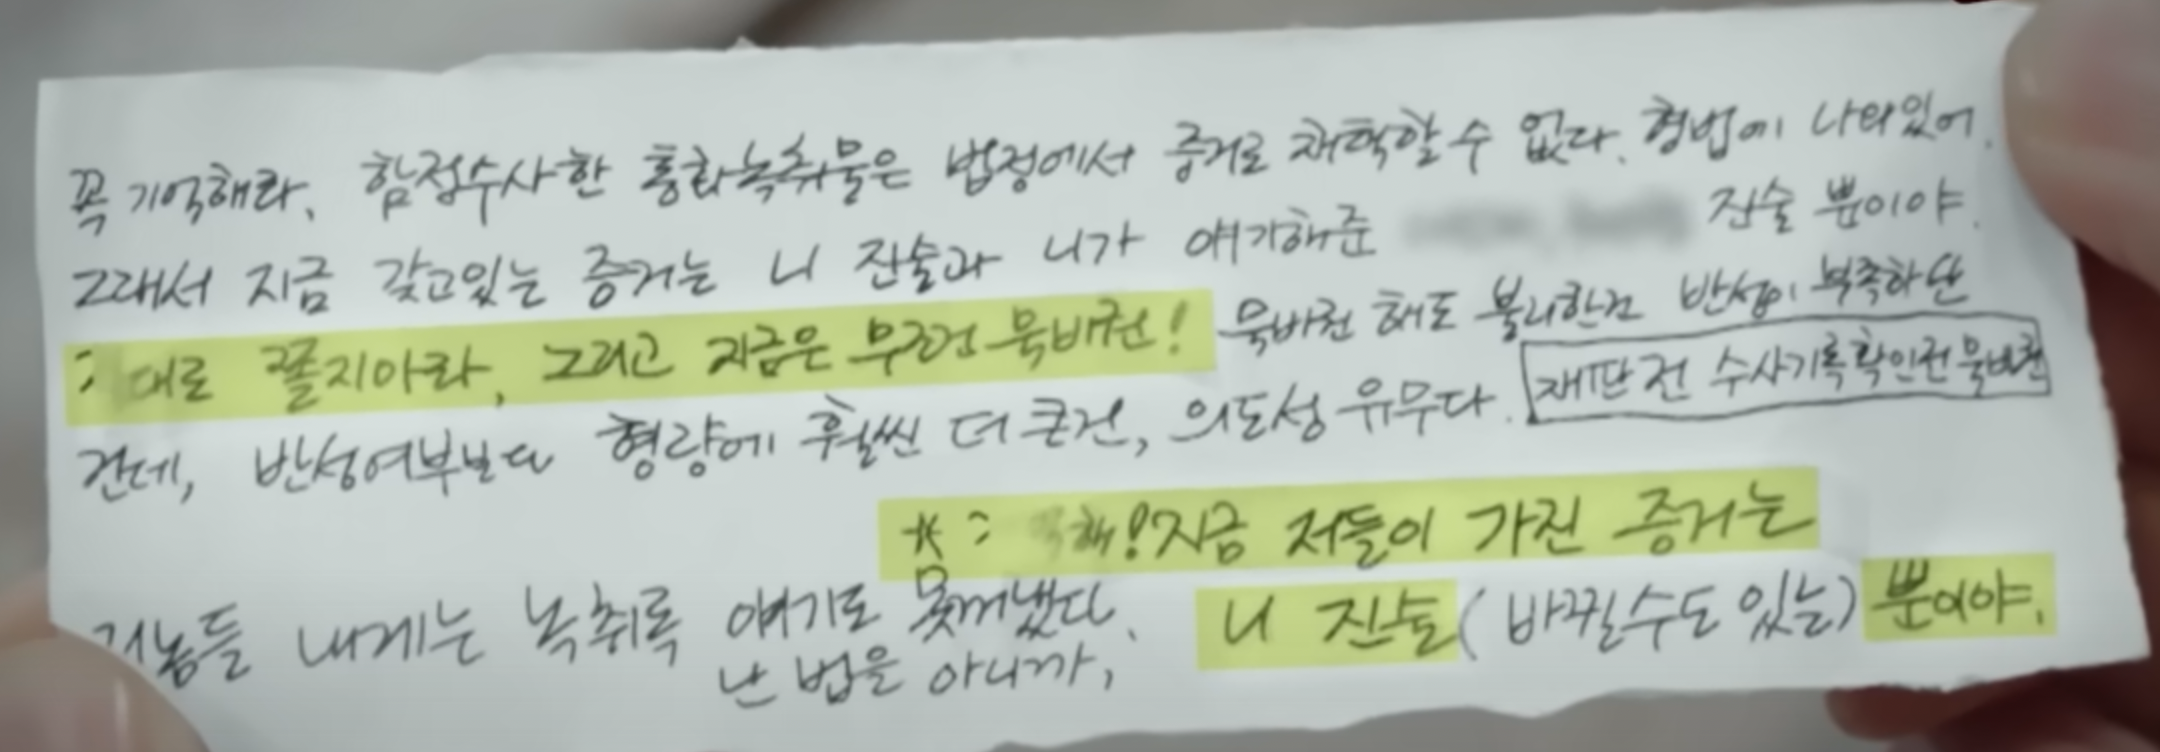 꼭 기억해라. 함정수사한 통화녹취물은 법정에서 증거로 채택할 수 없다. 형법에 나와있어.
그래서 지금 갖고있는 증거는 니 진술과 니가 얘기해준 진술 뿐이야.
대로 쫄지마라, 그리고 지금은 무조건 묵비권! 묵비권 해도 불리한건 반성이 부족하단
건데, 반성여부보다 형량에 훨씬 더 큰건, 의도성 유무다. 재판전 수사기록확인전묵비권
* 해! 지금 저들이 가진 증거는
저놈들 내게는 녹취록 얘기도 못꺼냈다. 니 진술(바뀔수도 있는) 뿐이야.
난 법을 아니까,